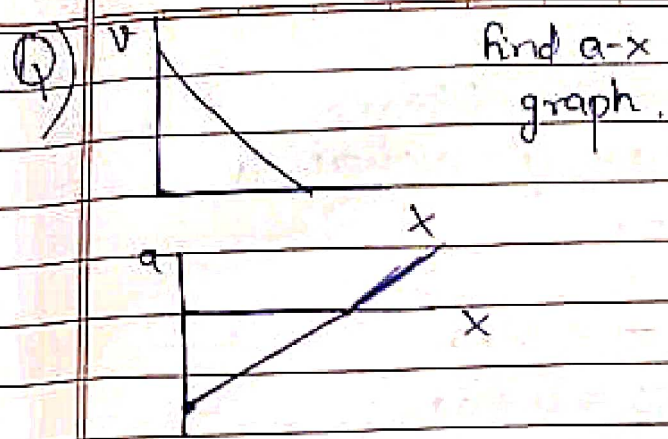 Q) v find a-x
graph.
x
a
x